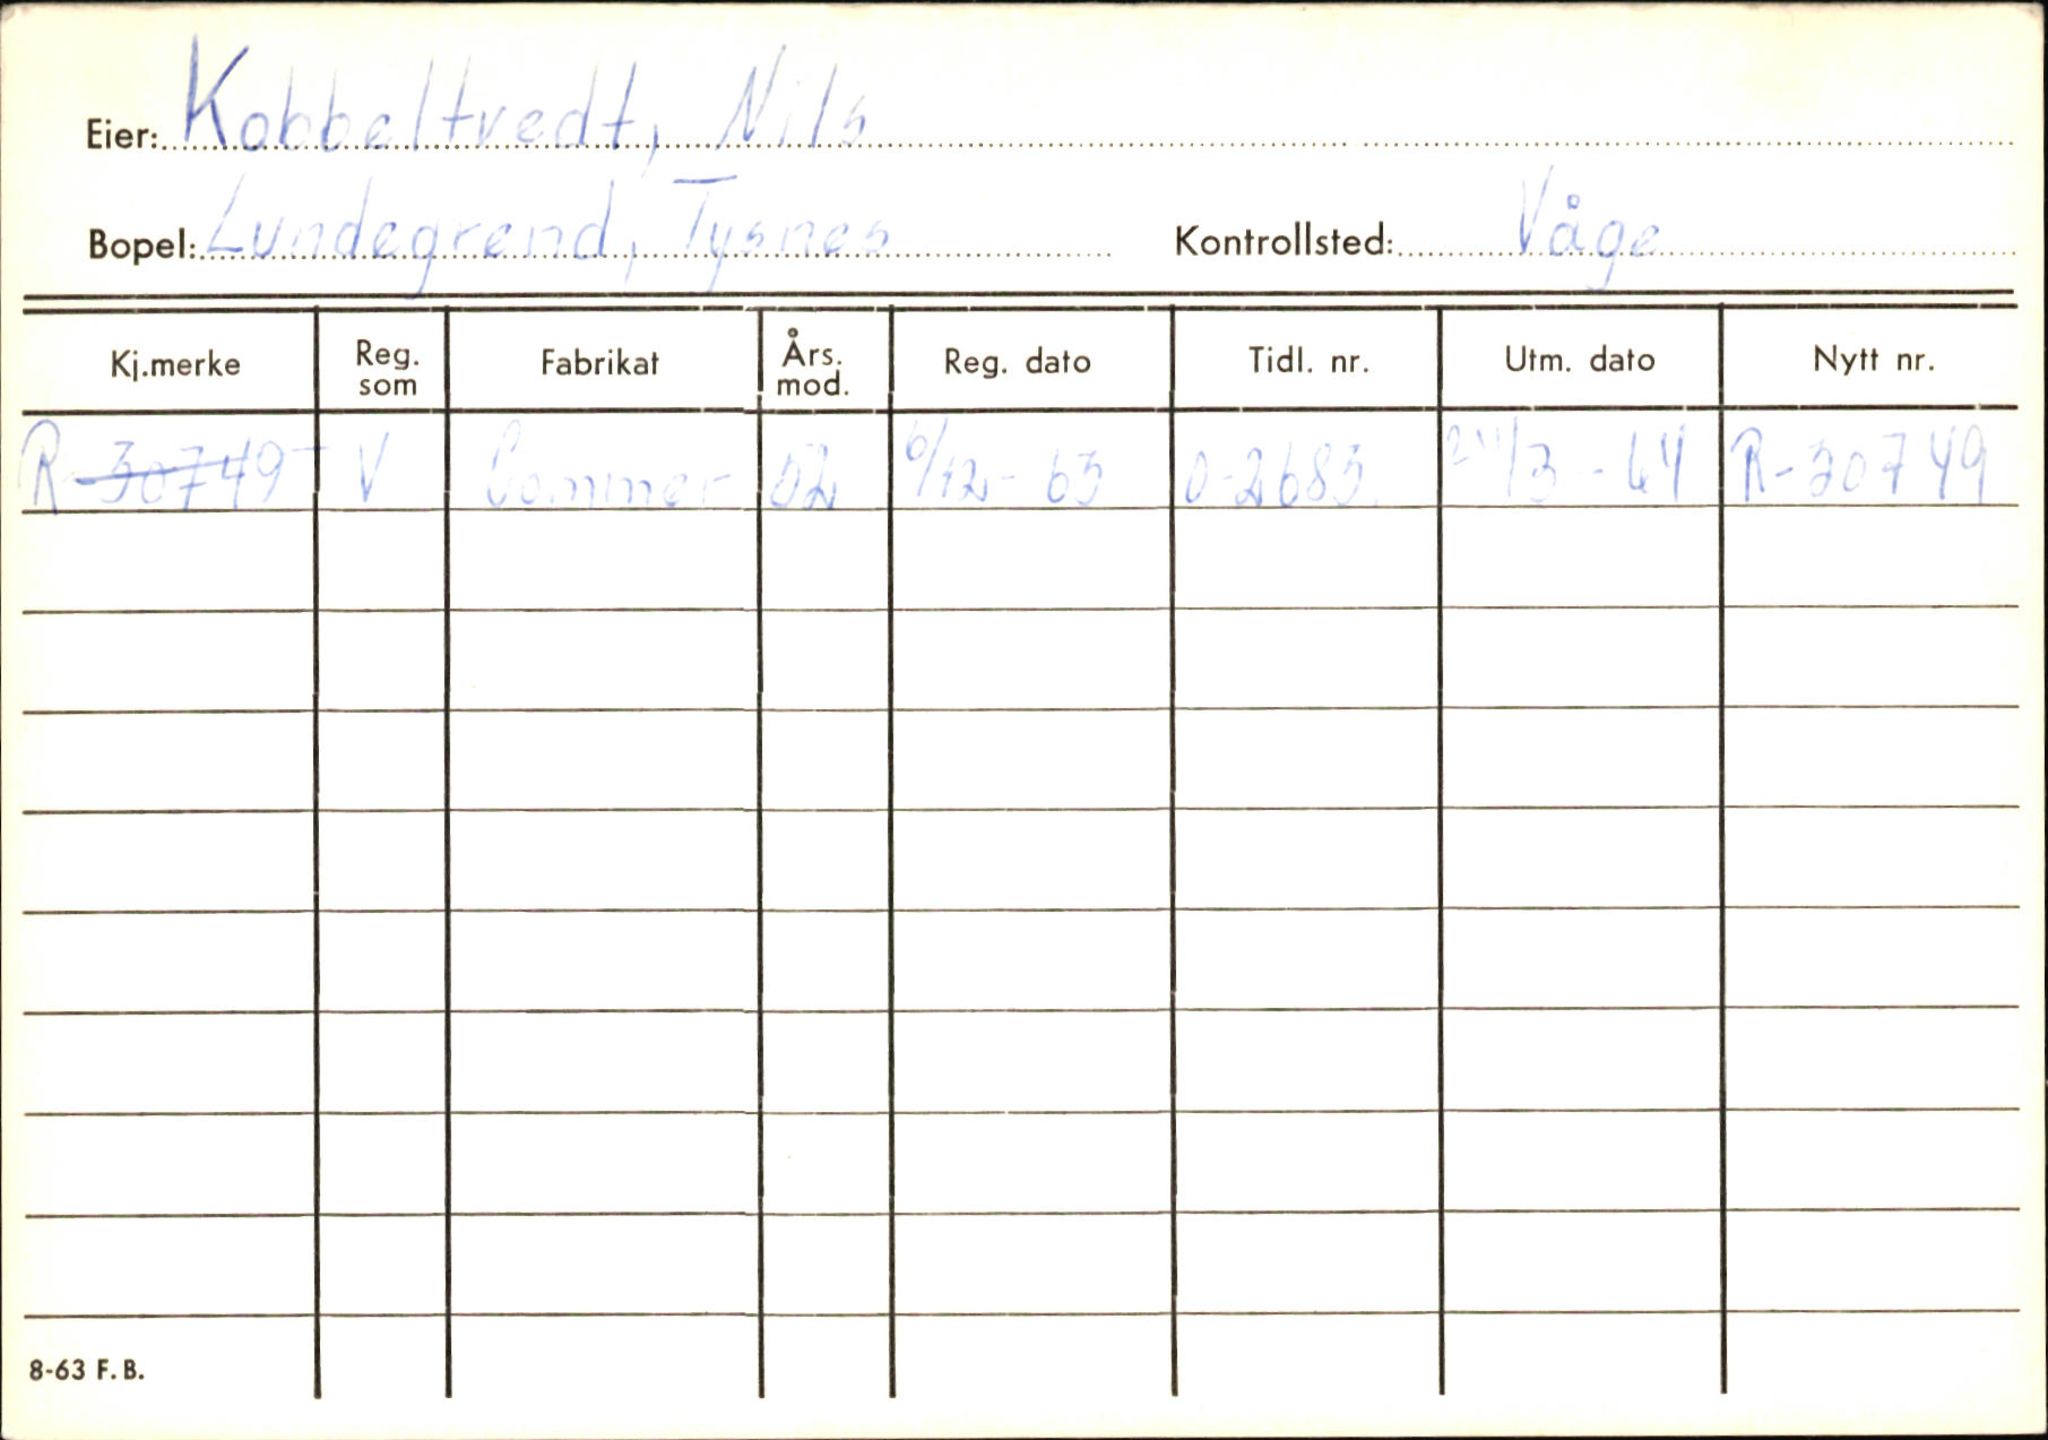 Eier: Kobbeltvedt, Nils
Bopel: Lundegrend, Tysnes Kontrollsted: Våge
Kj.merke Reg. som Fabrikat Års. mod. Reg. dato Tidl. nr. Utm. dato Nytt nr.
R-30749 V Commer 52 6/12-63 O-2683. 24/3-64 R-30749
8-63 F.B.